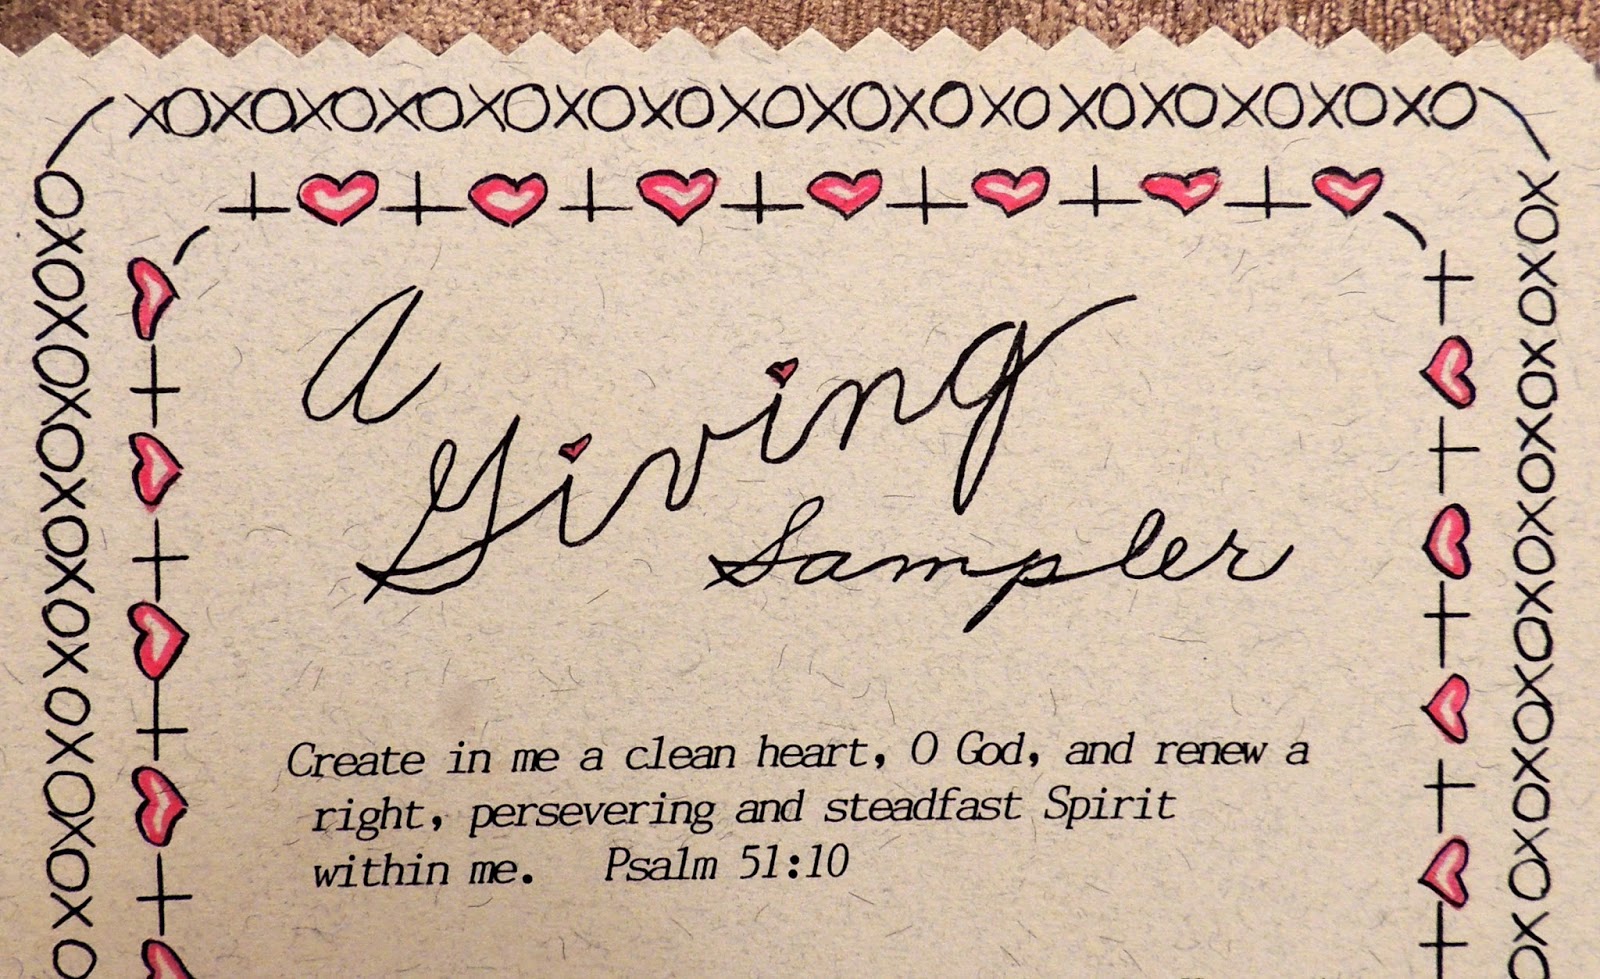 XOXOXOXOXOXOXOXOXOXOXOXOXOXOXOXO
A
Giving
Sampler
Create in me a clean heart, O God, and renew a
right, persevering and steadfast Spirit
within me. Psalm 51:10